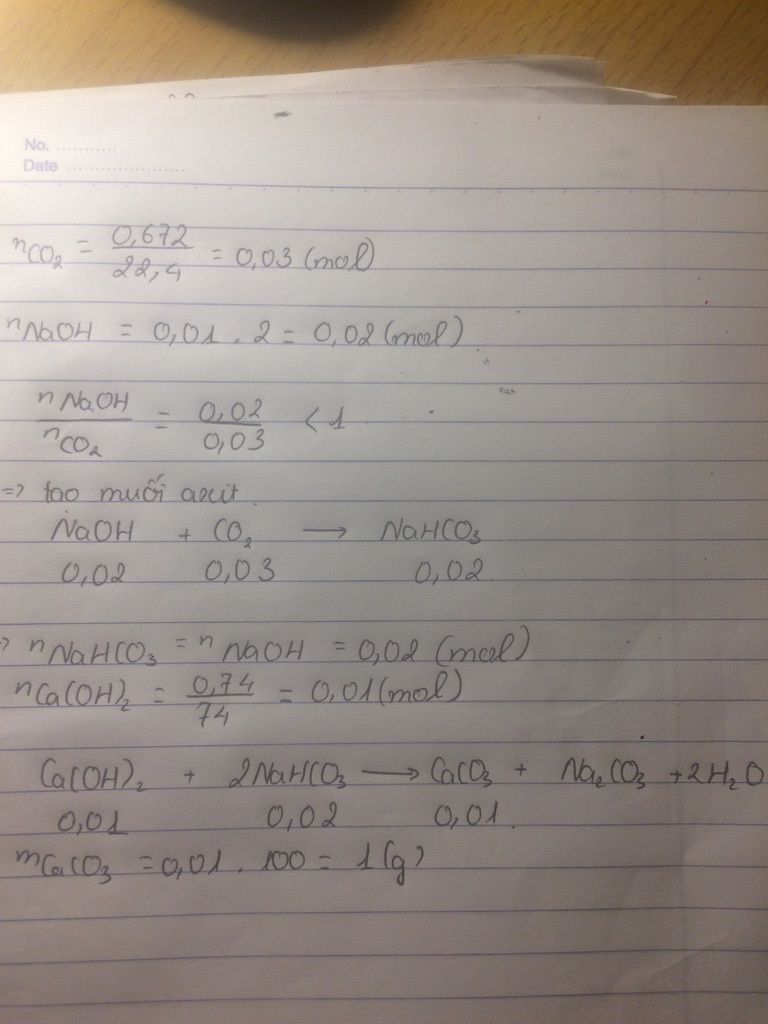 No. ............
Date ........................
nCO₂ = 0,672/22,4 = 0,03 (mol)
nNaOH = 0,01 . 2 = 0,02 (mol)
nNaOH/nCO₂ = 0,02/0,03 < 1
=> tạo muối axit.
NaOH + CO₂ ⟶ NaHCO₃
0,02 0,03 0,02.
=> nNaHCO₃ = nNaOH = 0,02 (mol)
nCa(OH)₂ = 0,74/74 = 0,01 (mol)
Ca(OH)₂ + 2NaHCO₃ ⟶ CaCO₃ + Na₂CO₃ + 2H₂O
0,01 0,02 0,01.
mCaCO₃ = 0,01 . 100 = 1 (g)